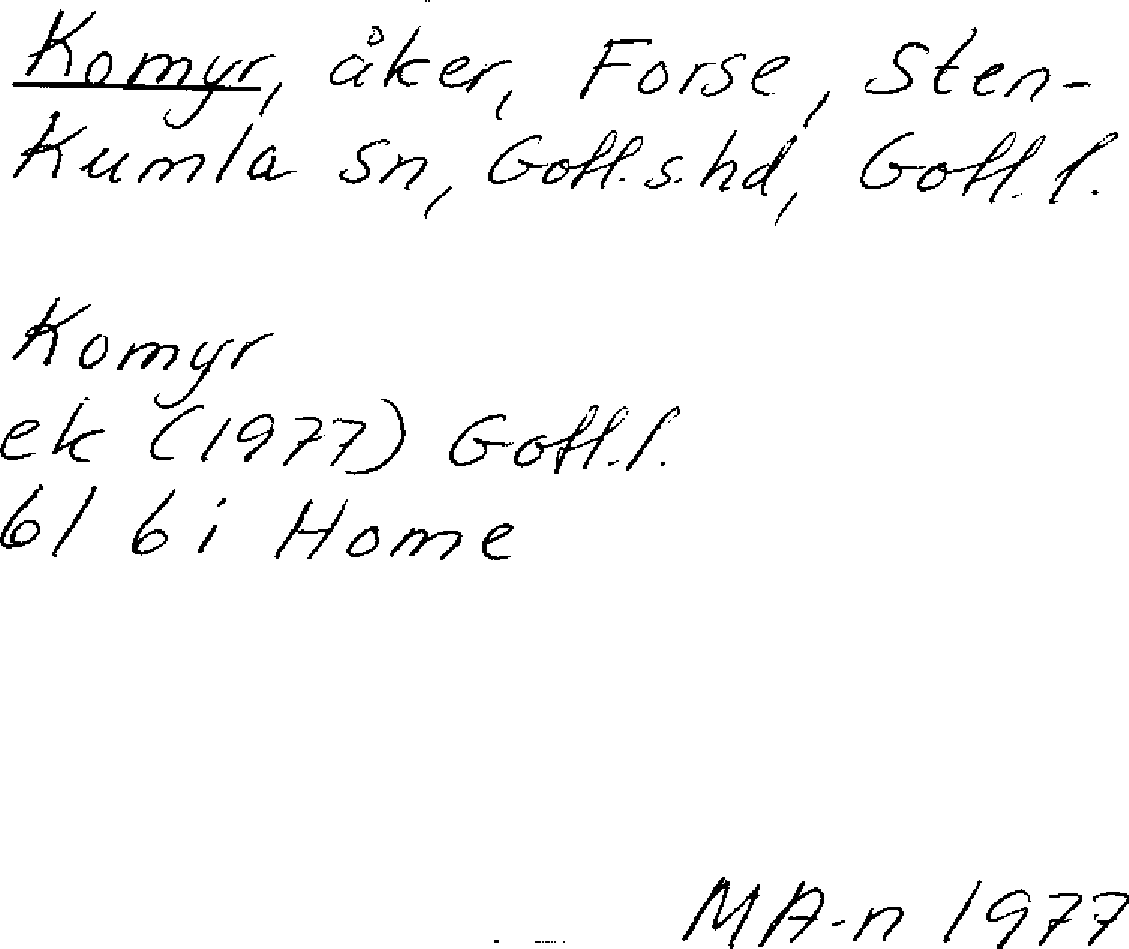 Komyr, åker, Forse, Sten-
Kumla sn, Gotl. s. hd, Gotl. l.
Komyr
ek (1977) Gotl. l.
6I 6i Home
MA-n 1977